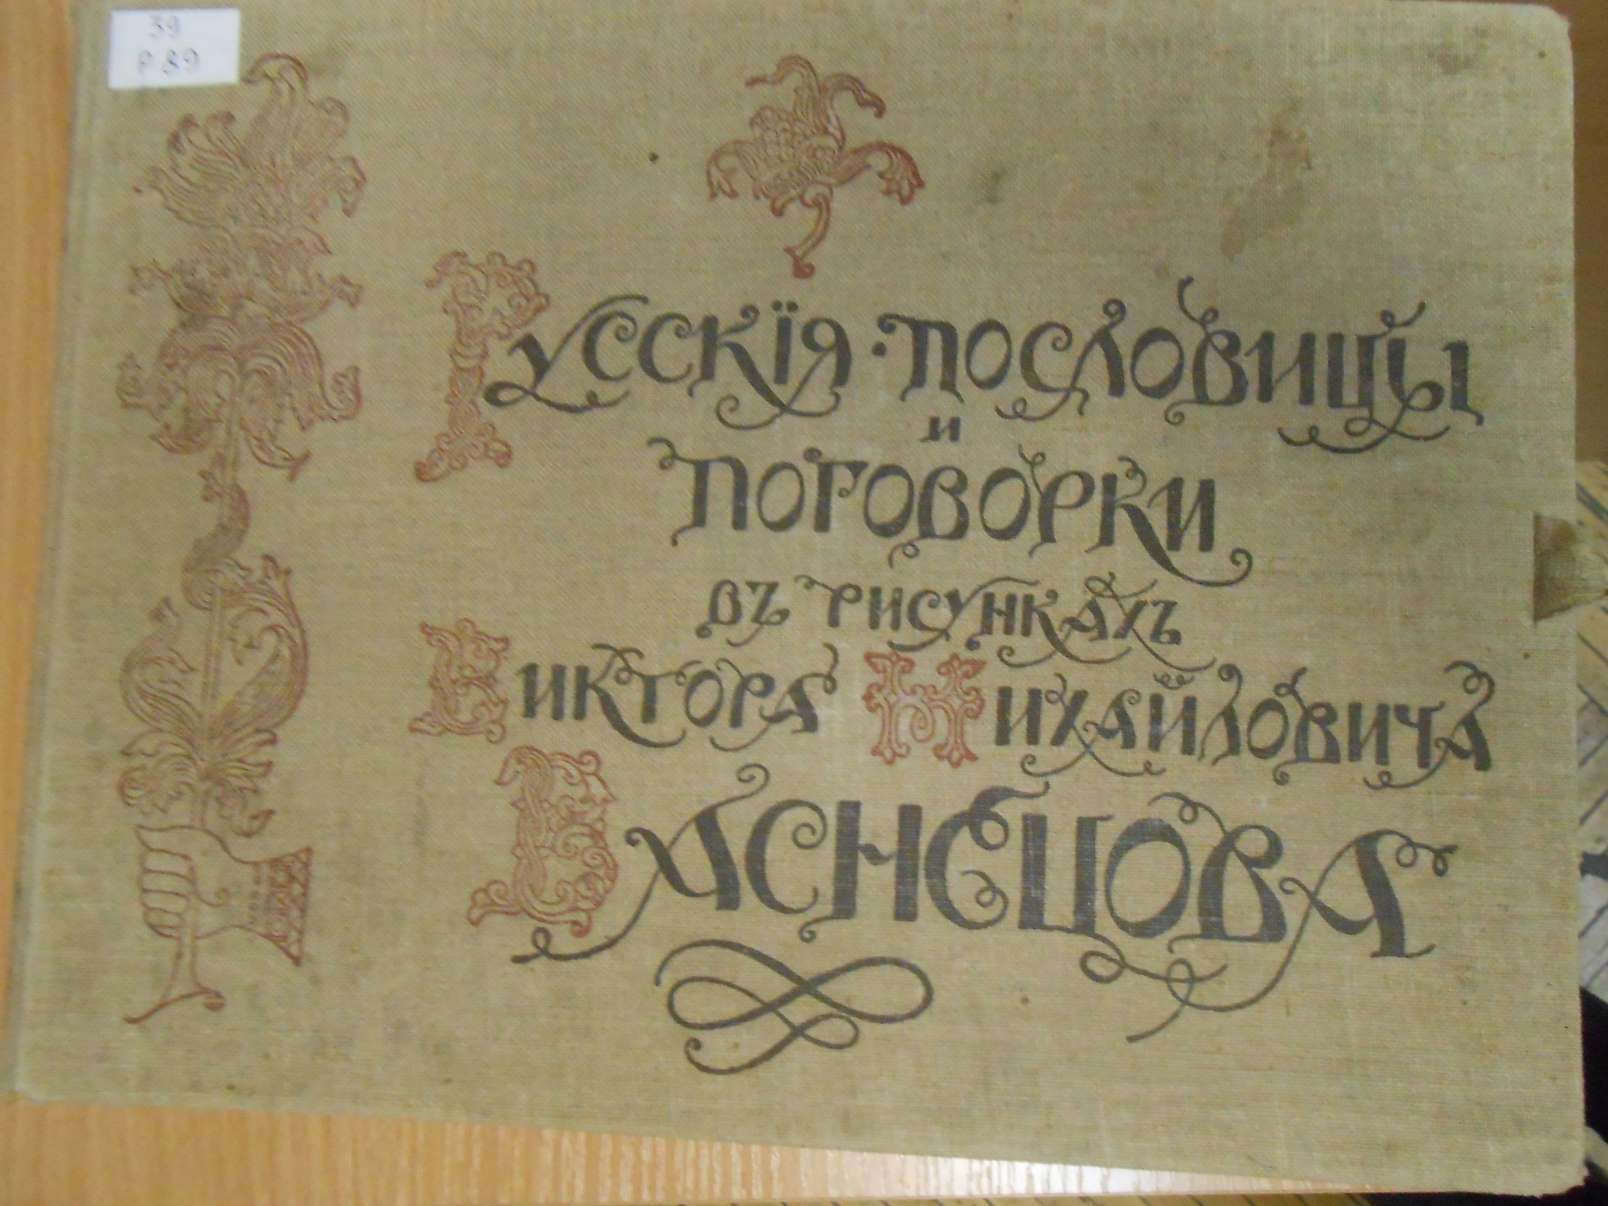 39
Р 89
Русскія · пословицы
и
поговорки
въ рисункахъ
Виктора Михайловича
Васнецова